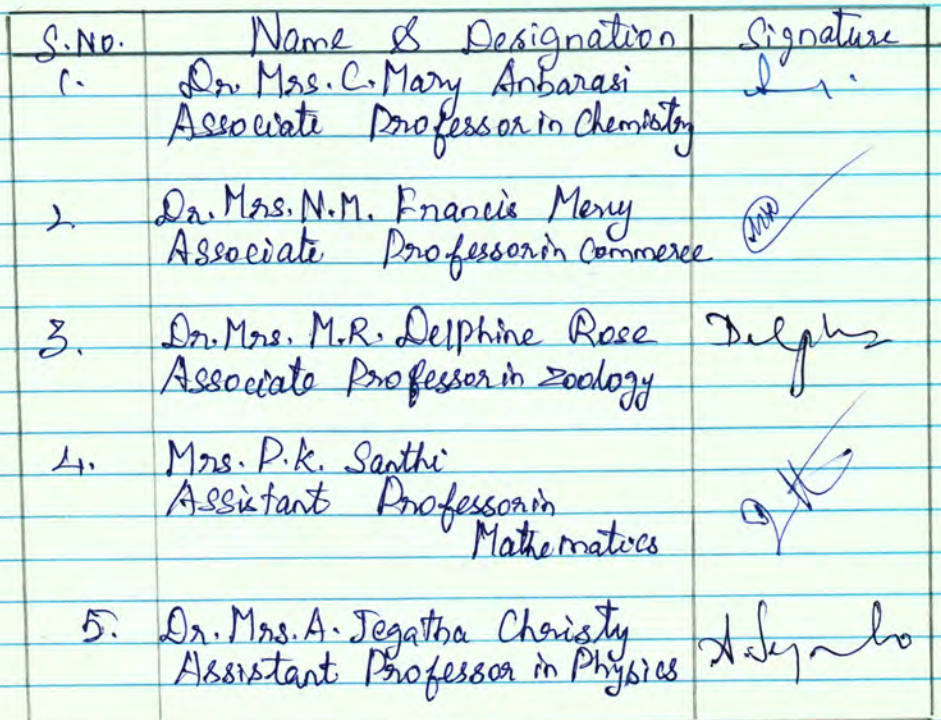 S.No. Name & Designation Signature
1. Dr. Mrs. C. Mary Anbarasi
Associate Professor in Chemistry
2. Dr. Mrs. N.M. Francis Mercy
Associate Professor in Commerce
3. Dr. Mrs. M.R. Delphine Rose Delphi
Associate Professor in Zoology
4. Mrs. P.K. Santhi
Assistant Professor in
Mathematics
5. Dr. Mrs. A. Jegatha Christy
Assistant Professor in Physics